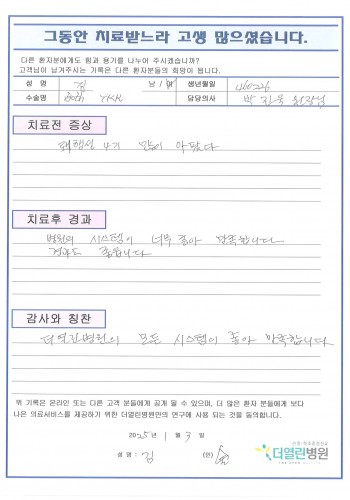 그동안 치료받느라 고생 많으셨습니다.
다른 환자분에게도 힘과 용기를 나누어 주시겠습니까?
고객님이 남겨주시는 기록은 다른 환자분들의 희망이 됩니다.
성 명 김 남 / 여 생년월일
수술명 담당의사 박 원장님
치료전 증상
퇴행성 4기 많이 아팠다
치료후 경과
병원의 시스템이 너무 좋아 만족합니다
경과도 좋습니다
감사와 칭찬
더열린병원의 모든 시스템이 좋아 만족합니다
위 기록은 온라인 또는 다른 고객 분들에게 공개 될 수 있으며, 더 많은 환자 분들에게 보다
나은 의료서비스를 제공하기 위한 더열린병원만의 연구에 사용 되는 것을 동의합니다.
2025년 1 월 3 일
성 명 : 김 (인)
더열린병원